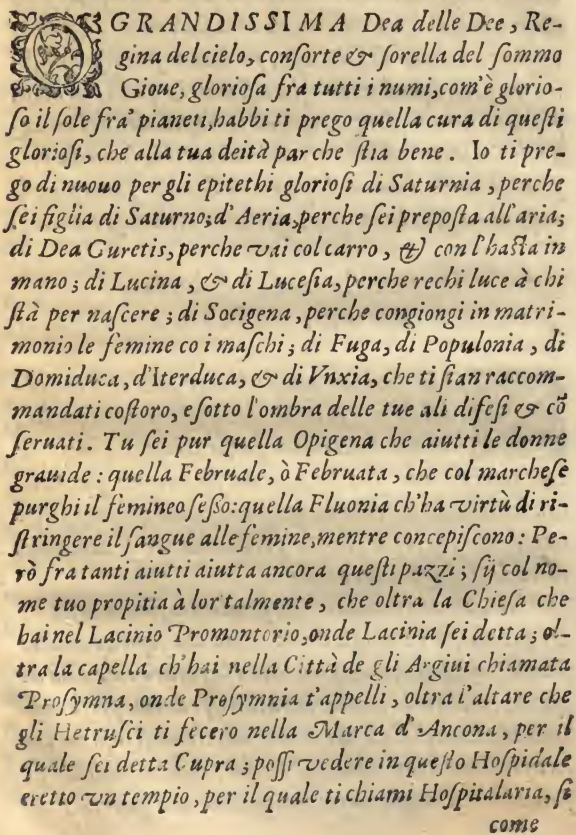 O GRANDISSIMA Dea delle Dee, Re-
gina del cielo, conſorte & ſorella del ſommo
Gioue, glorioſa fra tutti i numi, com'è glorio-
ſo il ſole fra' pianeti, habbi ti prego quella cura di queſti
glorioſi, che alla tua deità par che ſtia bene. Io ti pre-
go di nuouo per gli epitethi glorioſi di Saturnia, perche
ſei figlia di Saturno; d'Aeria, perche ſei prepoſta all'aria;
di Dea Curetis, perche vai col carro, & con l'haſta in
mano; di Lucina, & di Luceſia, perche rechi luce à chi
ſtà per naſcere; di Socigena, perche congiongi in matri-
monio le femine co i maſchi; di Fuga, di Populonia, di
Domiduca, d'Iterduca, & di Vnxia, che ti ſian raccom-
mandati coſtoro, e ſotto l'ombra delle tue ali difeſi & cõ
ſeruati. Tu ſei pur quella Opigena che aiutti le donne
grauide: quella Februale, ò Februata, che col marcheſe
purghi il femineo ſeſſo: quella Fluonia ch'ha virtù di ri-
ſtringere il ſangue alle femine, mentre concepiſcono: Pe-
rò fra tanti aiutti aiutta ancora queſti pazzi; ſij col no-
me tuo propitia à lor talmente, che oltra la Chieſa che
hai nel Lacinio Promontorio, onde Lacinia ſei detta; ol-
tra la capella ch'hai nella Città de gli Argiui chiamata
Proſymna, onde Proſymnia t'appelli, oltra l'altare che
gli Hetruſci ti fecero nella Marca d'Ancona, per il
quale ſei detta Cupra; poſſi vedere in queſto Hoſpidale
eretto vn tempio, per il quale ti chiami Hoſpitalaria, ſi
come